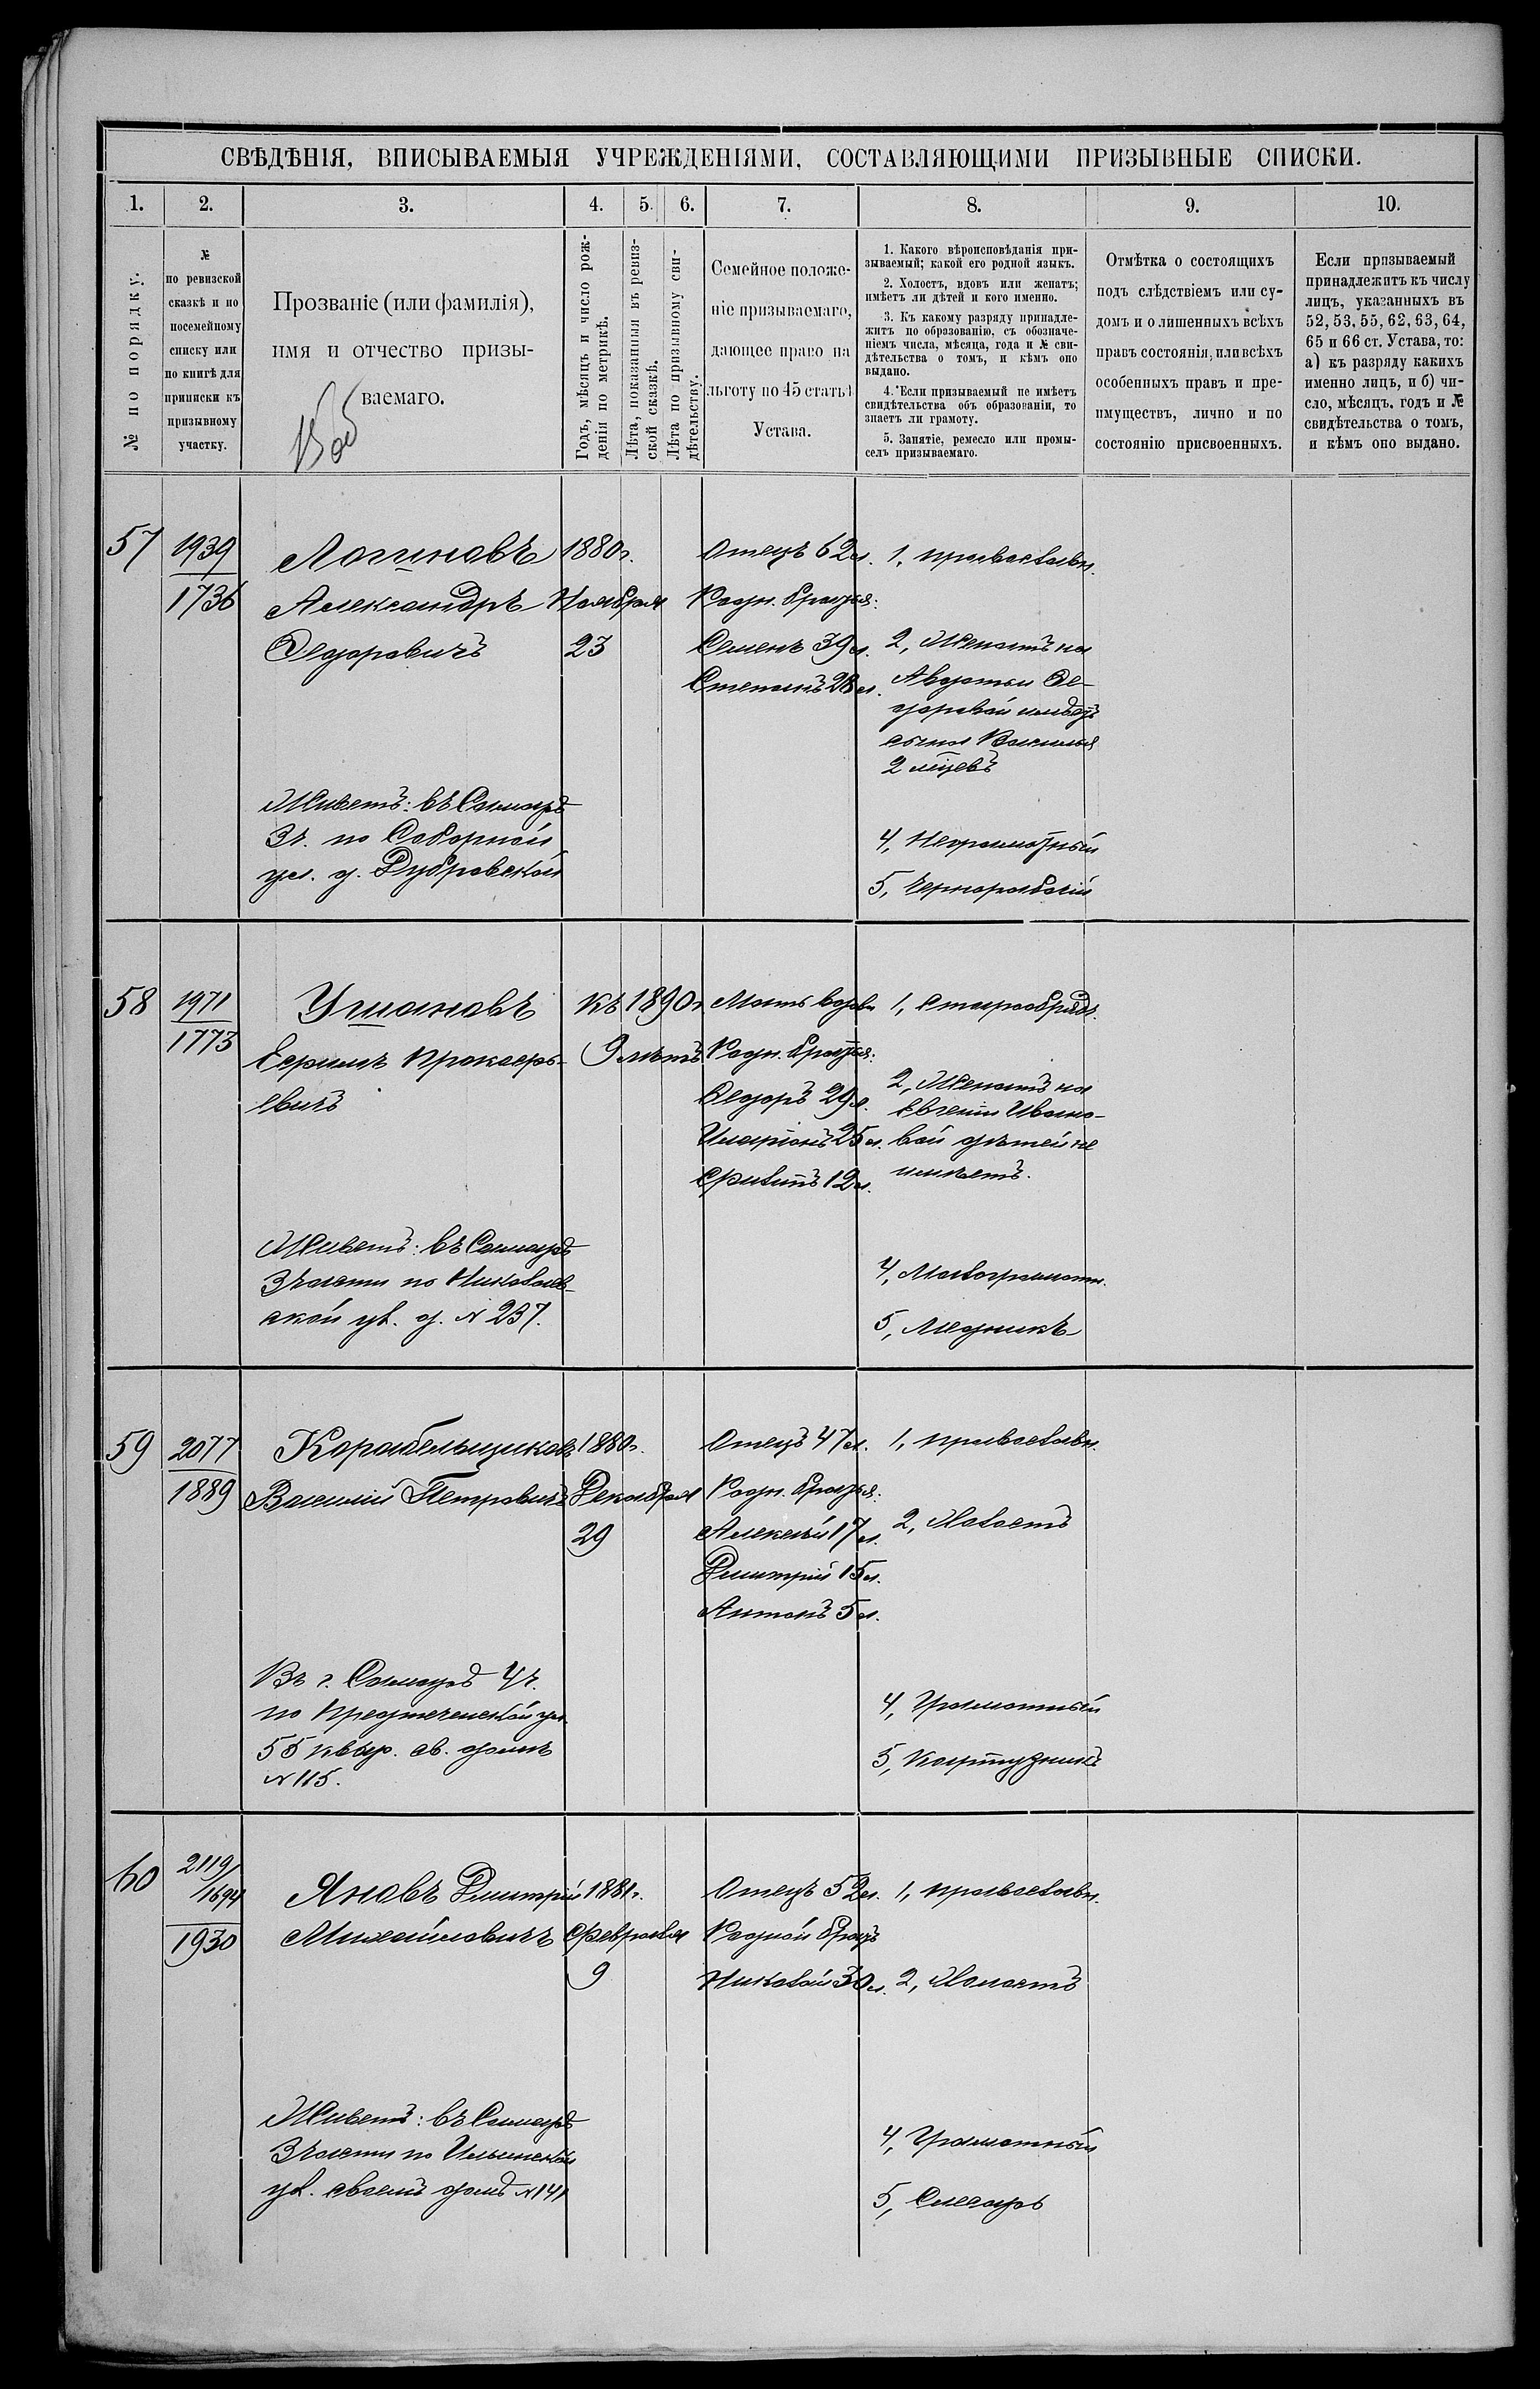 СВѢДѢНІЯ, ВПИСЫВАЕМЫЯ УЧРЕЖДЕНІЯМИ, СОСТАВЛЯЮЩИМИ ПРИЗЫВНЫЕ СПИСКИ.
1. 2. 3. 4. 5. 6. 7. 8. 9. 10.
№ по порядку.
№
по ревизской
сказкѣ и по
посемейному
списку или
по книгѣ для
приписки къ
призывному
участку.
Прозваніе (или фамилія),
имя и отчество призы-
ваемаго.
Годъ, мѣсяцъ и число рож-
денія по метрикѣ.
Лѣта, показанныя въ ревиз-
ской сказкѣ.
Лѣта по призывному сви-
дѣтельству.
Семейное положе-
ніе призываемаго,
дающее право на
льготу по 45 статьѣ
Устава.
1. Какого вѣроисповѣданія при-
зываемый; какой его родной языкъ.
2. Холостъ, вдовъ или женатъ;
имѣетъ ли дѣтей и кого именно.
3. Къ какому разряду принадле-
житъ по образованію, съ обозначе-
ніемъ числа, мѣсяца, года и № сви-
дѣтельства о томъ, и кѣмъ оно
выдано.
4. Если призываемый не имѣетъ
свидѣтельства объ образованіи, то
знаетъ ли грамоту.
5. Занятіе, ремесло или промы-
селъ призываемаго.
Отмѣтка о состоящихъ
подъ слѣдствіемъ или су-
домъ и о лишенныхъ всѣхъ
правъ состоянія, или всѣхъ
особенныхъ правъ и пре-
имуществъ, лично и по
состоянію присвоенныхъ.
Если призываемый
принадлежитъ къ числу
лицъ, указанныхъ въ
52, 53, 55, 62, 63, 64,
65 и 66 ст. Устава, то:
а) къ разряду какихъ
именно лицъ, и б) чи-
сло, мѣсяцъ, годъ и №
свидѣтельства о томъ,
и кѣмъ оно выдано.
57
1939
1736
Логиновъ
Александръ
Федоровичъ
Живетъ: въ Самарѣ
3ч. по Соборной
ул. д. Дубровской
1880г.
Ноября
23
Отецъ 62л.
Родн. братья:
Семенъ 39л.
Степанъ 28л.
1, православн.
2, Женатъ на
Авдотьи Фе-
доровой имѣетъ
сына Василья
2 мцевъ
4, Неграмотный
5, Чернорабочій
58
1971
1773
Ушановъ
Ефримъ Прокофь-
евичъ
Живетъ: въ Самарѣ
3 части по Николаев-
ской ул. д. № 237.
къ 1890г
9 лѣтъ
Мать вдова
Родн. братья:
Федоръ 29л.
Иларіонъ 25л.
Филипъ 12л.
1, Старообряд.
2, Женатъ на
Евгеніи Ивано-
вой дѣтей не
имѣетъ.
4, Малограмотн.
5, Медникъ
59
2077
1889
Корабельщиковъ
Василій Петровичъ
Въ г. Самарѣ 4ч.
по Предтеченской ул.
55 кварт. св. домъ
№ 115.
1880г.
Декабря
29
Отецъ 47л.
Родн. братья:
Алексѣй 17л.
Дмитрій 15л.
Антонъ 5л.
1, православн.
2, Холостъ
4, Грамотный
5, Картузникъ
60
2119/
/1694
1930
Яновъ Дмитрій
Михайловичъ
Живетъ: въ Самарѣ
3 части по Ильинской
ул. своемъ домѣ № 141
1881г.
Февраля
9
Отецъ 52л.
Родной братъ
Николай 30л.
1, православн.
2, Холостъ
4, Грамотный
5, Слесарь